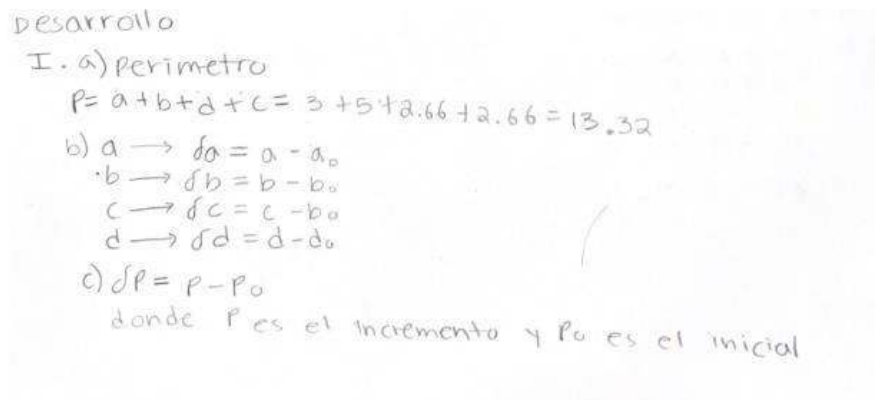 Desarrollo
I. a) perimetro
P= a+b+d+c= 3+5+2.66+2.66=13.32
b) a → δa = a - a₀
·b → δb = b - b₀
c → δc = c - b₀
d → δd = d - d₀
c) δP = P - P₀
donde P es el incremento y P₀ es el inicial